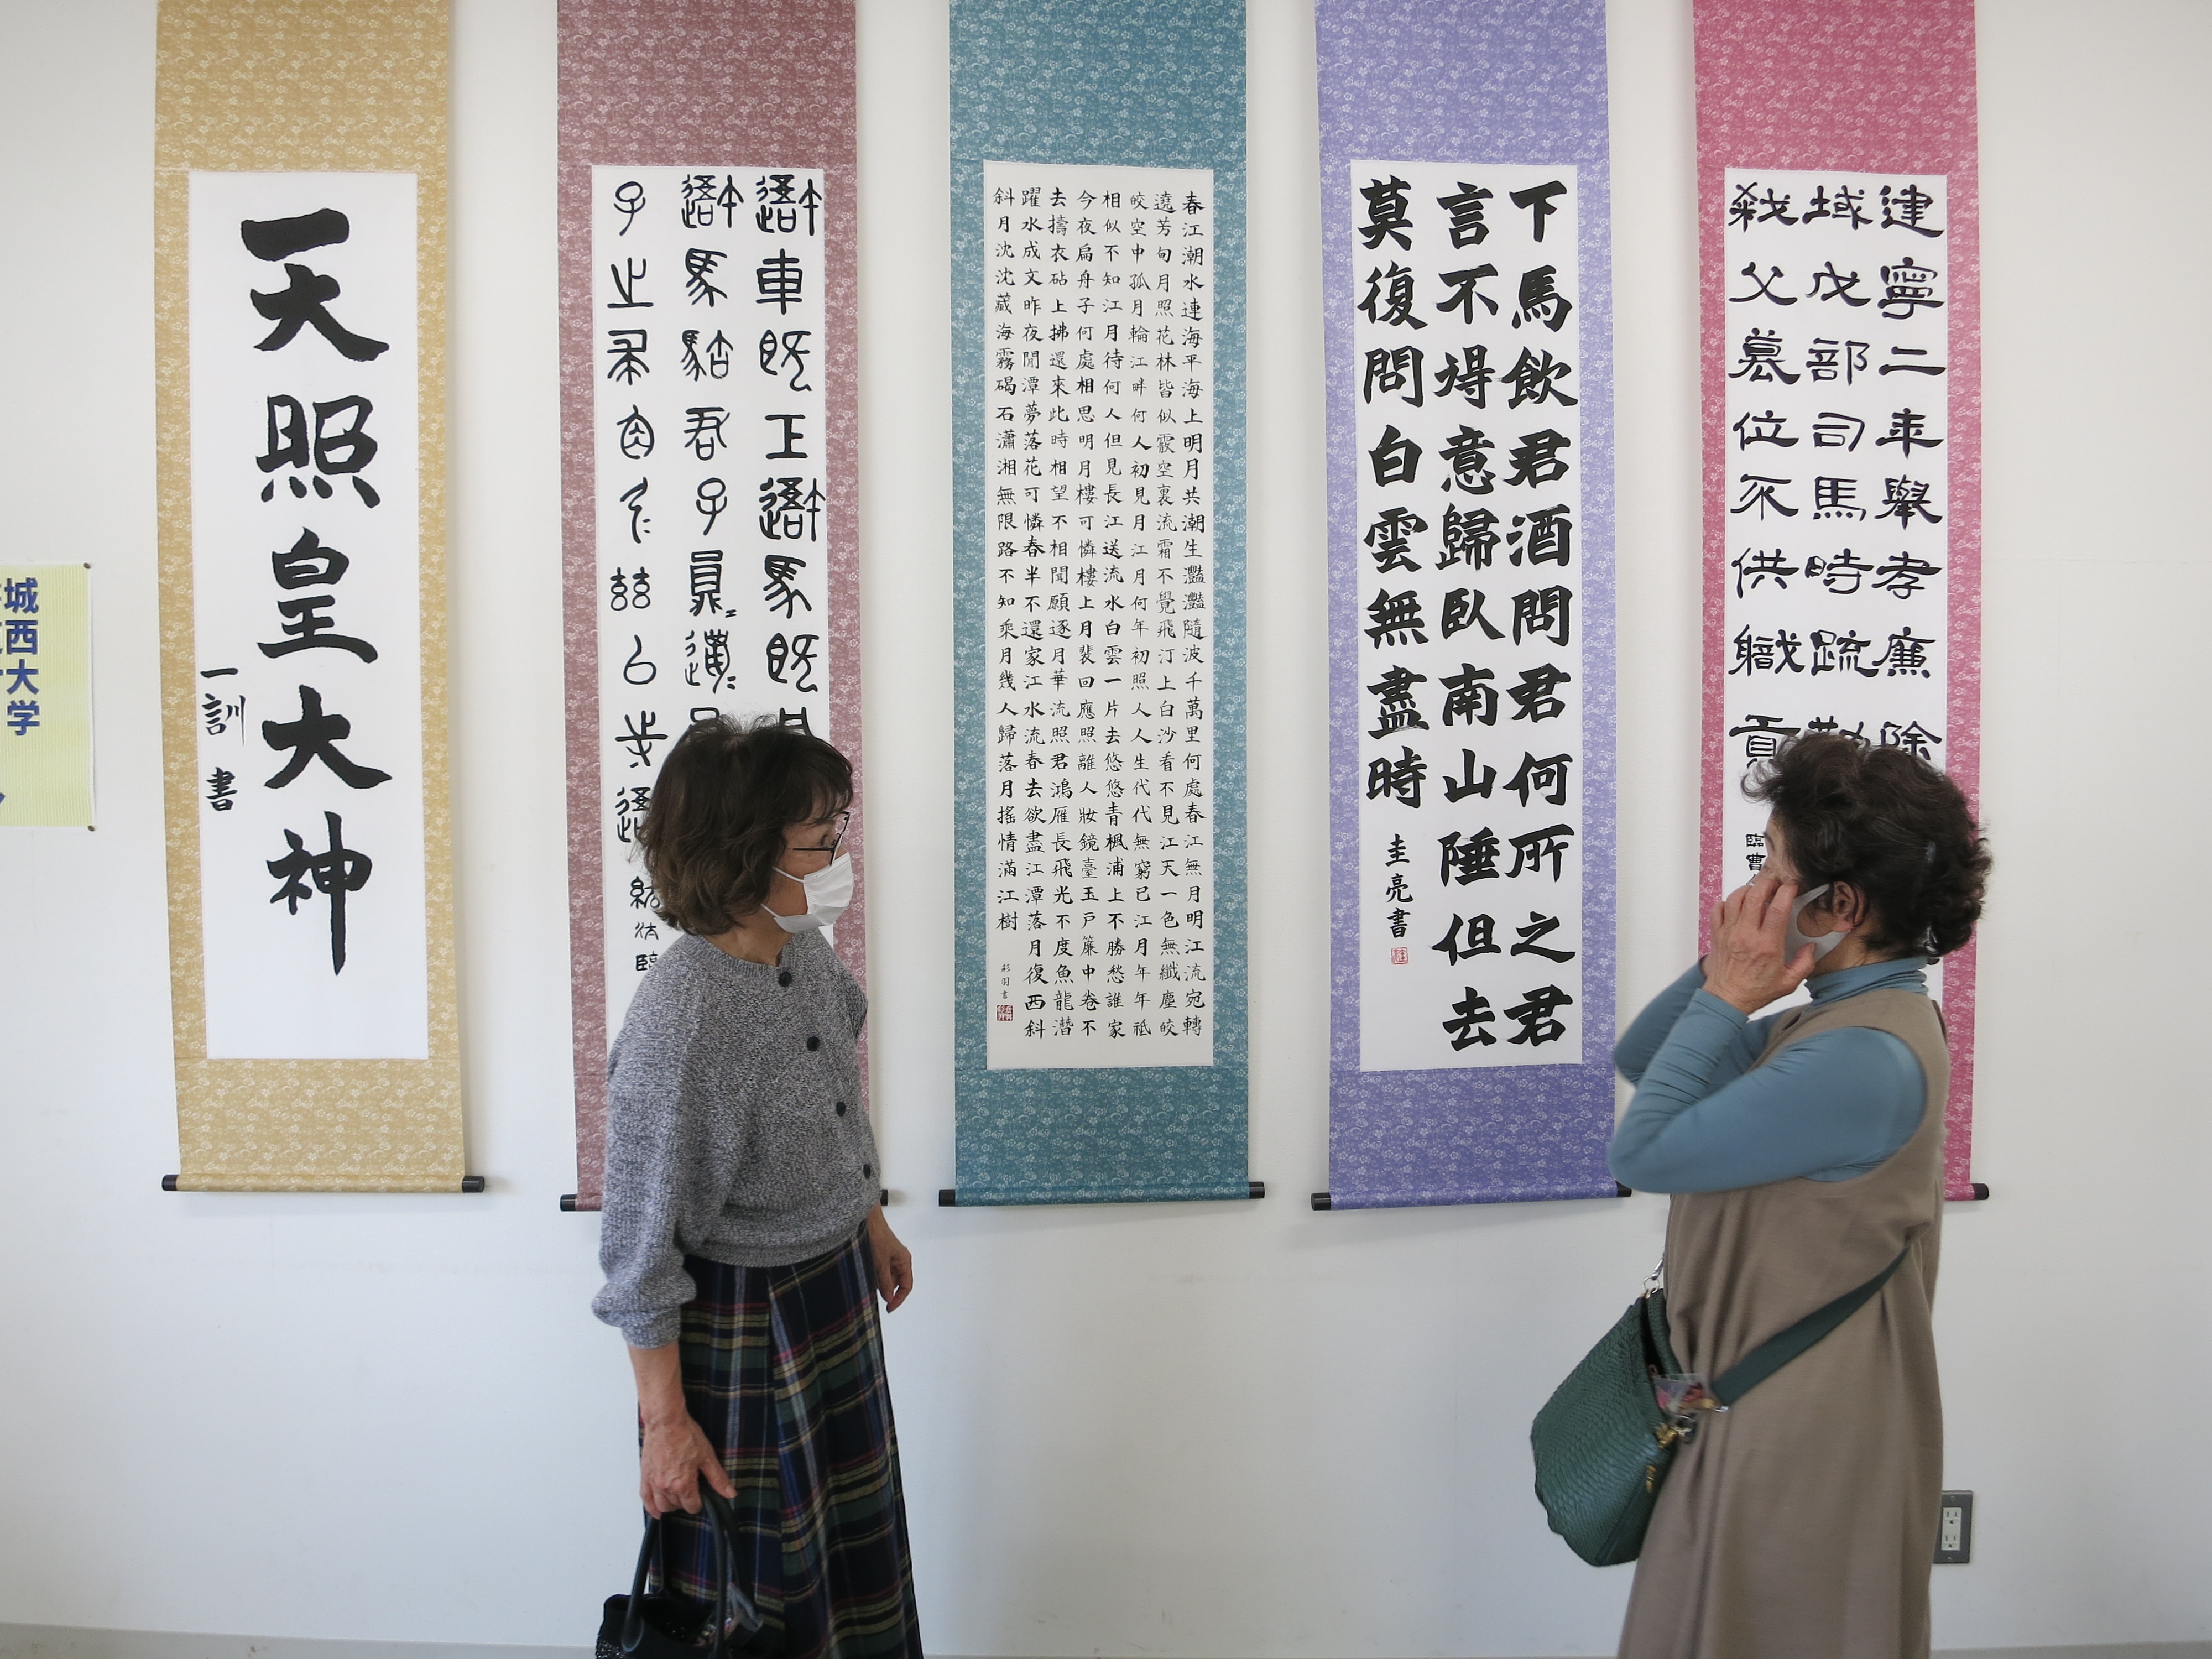 城西大学
天照皇大神
一訓書
車既工馬既
馬君子員
子之求弓茲以寺
臨
春江潮水連海平海上明月共潮生灩灩隨波千萬里何處春江無月明江流宛轉
遶芳甸月照花林皆似霰空裏流霜不覺飛汀上白沙看不見江天一色無纖塵皎
皎空中孤月輪江畔何人初見月江月何年初照人人生代代無窮已江月年年祗
相似不知江月待何人但見長江送流水白雲一片去悠悠青楓浦上不勝愁誰家
今夜扁舟子何處相思明月樓可憐樓上月裴回應照離人妝鏡臺玉戸簾中卷不
去擣衣砧上拂還來此時相望不相聞願逐月華流照君鴻雁長飛光不度魚龍潛
躍水成文昨夜閒潭夢落花可憐春半不還家江水流春去欲盡江潭落月復西斜
斜月沈沈藏海霧碣石瀟湘無限路不知乘月幾人歸落月搖情滿江樹
彩羽書
下馬飲君酒問君何所之君
言不得意歸臥南山陲但去
莫復問白雲無盡時
圭亮書
建寧二年舉孝廉除
域戊部司馬時疏勒
殺父篡位不供職貢
臨曹